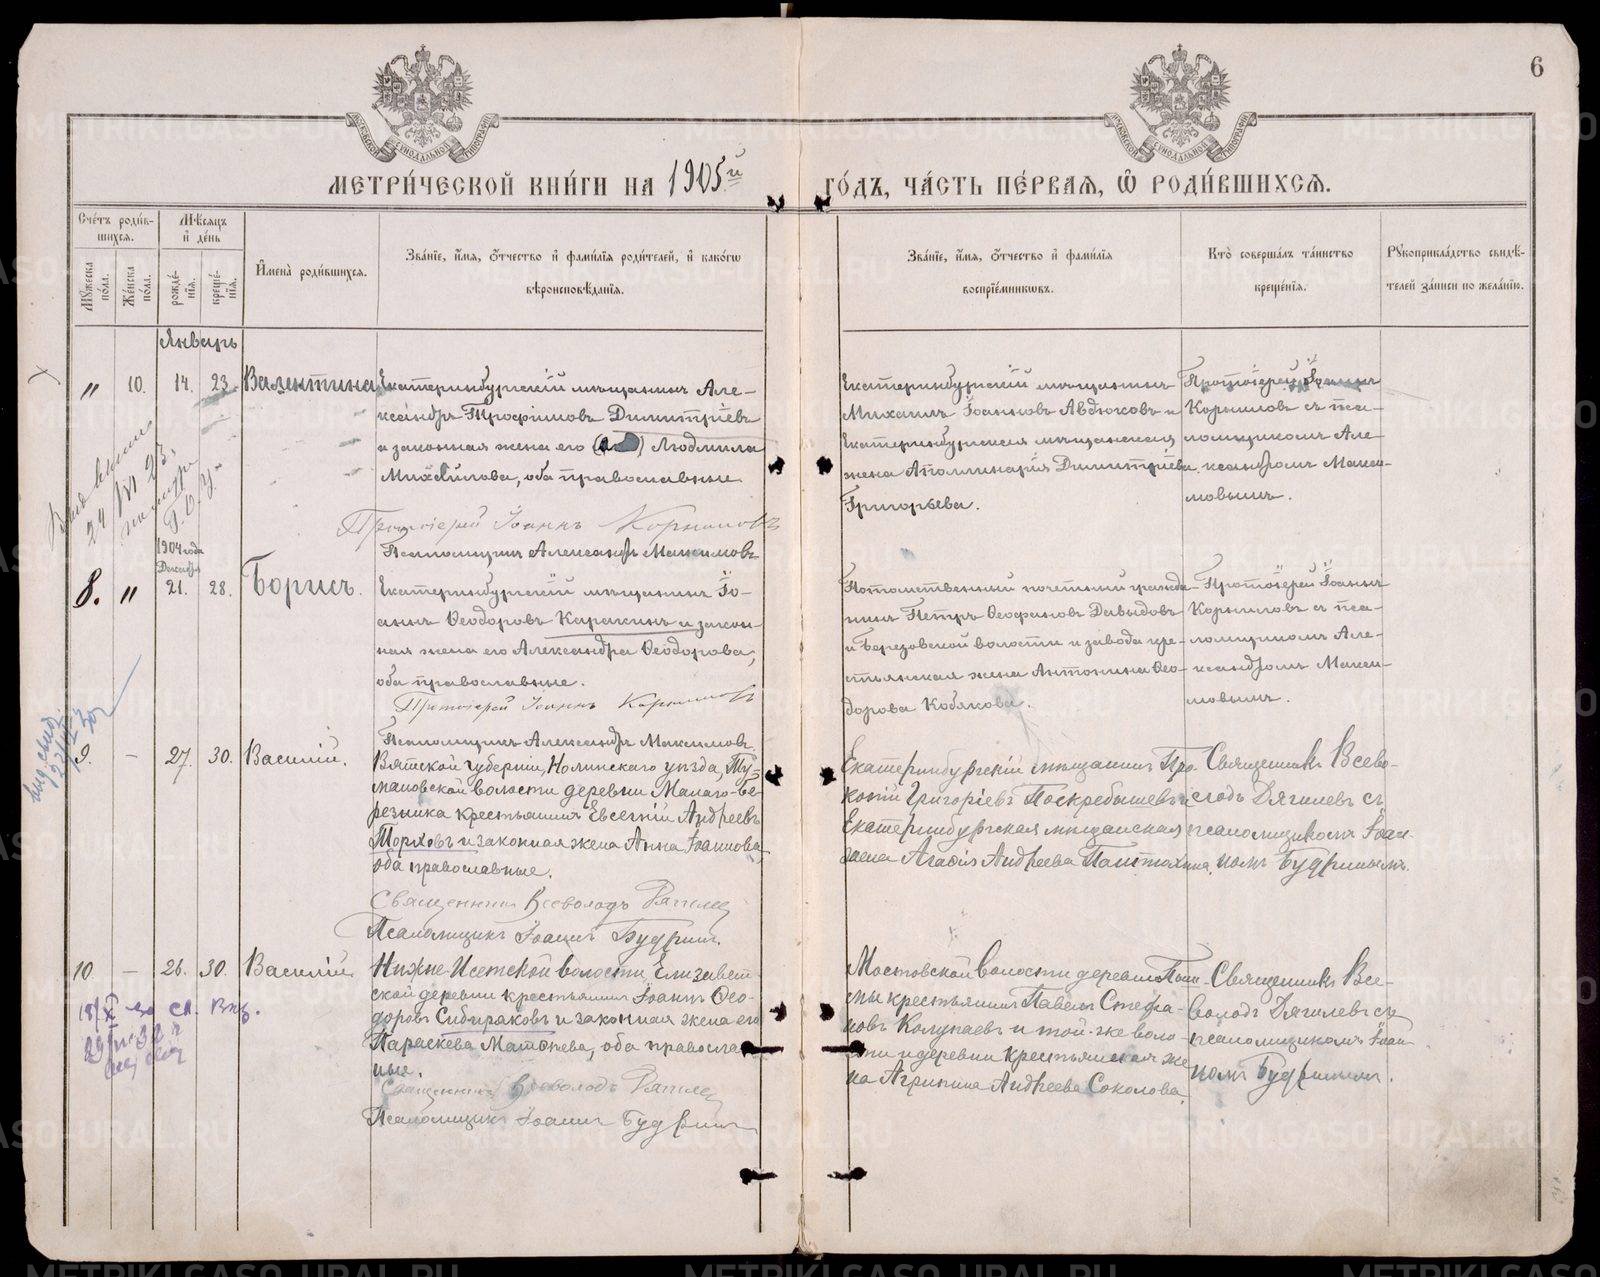 6
МОСКОВСКОЙ СѴНОДАЛЬНОЙ ТИПОГРАФІИ
МЕТРИ́ЧЕСКОЙ КНИ́ГИ НА 1905й ГО́ДЪ, ЧА́СТЬ ПЕ́РВАЯ, Ѿ РОДИ́ВШИХСЯ.
Сче́тъ роди́в-
шихся.
Мѣ́сяцъ
и҆ де́нь
Мꙋ́жеска по́ла.
Же́нска по́ла.
рожде́-
нїя.
креще́-
нїя.
И҆мена̀ роди́вшихся.
Зва́нїе, и҆́мя, ѻ҆́тчество и҆ фами́лїя роди́телей, и҆ како́гѡ
вѣроисповѣ́данїя.
Зва́нїе, и҆́мя, ѻ҆́тчество и҆ фами́лїя
воспрїе́мникѡвъ.
Кто̀ соверша́лъ та́инство
креще́нїя.
Рꙋкоприкла́дство свидѣ́-
телей за́писи по жела́нїю.
Январь
" 10. 14. 23. Валентина
Екатеринбургскій мѣщанинъ Але-
ксандръ Трофимовъ Димитріевъ
и законная жена его Людмила
Михайлова, оба православные
Протоіерей Іоаннъ Корниловъ
Псаломщикъ Александръ Максимовъ
Екатеринбургскій мѣщанинъ
Михаилъ Іоанновъ Авдюковъ и
Екатеринбургская мѣщанская
жена Аполлинарія Димитріева
Григорьева.
Протоіерей Іоаннъ
Корниловъ съ пса-
ломщикомъ Але-
ксандромъ Макси-
мовымъ.
1904 года
Декабря
8. " 21. 28. Борисъ.
Екатеринбургскій мѣщанинъ Іо-
аннъ Ѳеодоровъ Каракинъ и закон-
ная жена его Александра Ѳеодорова,
оба православные.
Протоіерей Іоаннъ Корниловъ
Псаломщикъ Александръ Максимовъ.
Потомственный почетный гражда-
нинъ Петръ Ѳеофановъ Давыдовъ
и Березовской волости и завода кре-
стьянская жена Антонина Ѳео-
дорова Кобякова.
Протоіерей Іоаннъ
Корниловъ съ пса-
ломщикомъ Але-
ксандромъ Макси-
мовымъ.
9. — 27. 30. Василій.
Вятской губерніи, Нолинскаго уѣзда, Ту-
мановской волости деревни Малаго-Бе-
резника крестьянинъ Евсегній Андреевъ
Торховъ и законная жена Анна Іоаннова,
оба православные.
Священникъ Всеволодъ Дягилев
Псаломщикъ Іоаннъ Будрин.
Екатеринбургскій мѣщанинъ Про-
копій Григоріевъ Поскребышевъ и
Екатеринбургская мѣщанская
жена Агафія Андреева
Священникъ Всево-
лодъ Дягилевъ съ
псаломщикомъ Іоан-
номъ Будринымъ.
10 — 26. 30. Василій
Нижне-Исетской волости, Елизавет-
ской деревни крестьянинъ Іоаннъ Ѳео-
доровъ Сибиряковъ и законная жена его
Параскева Матѳіева, оба православ-
ные.
Священникъ Всеволодъ Дягилев
Псаломщикъ Іоаннъ Будрин
Мостовской волости деревни Пыш-
мы крестьянинъ Павелъ Стефа-
новъ Колупаевъ и той-же воло-
сти и деревни крестьянская же-
на Агрипина Андреева Соколова.
Священникъ Все-
володъ Дягилевъ съ
псаломщикомъ Іоан-
номъ Будринымъ.
METRIKI.GASO-URAL.RU